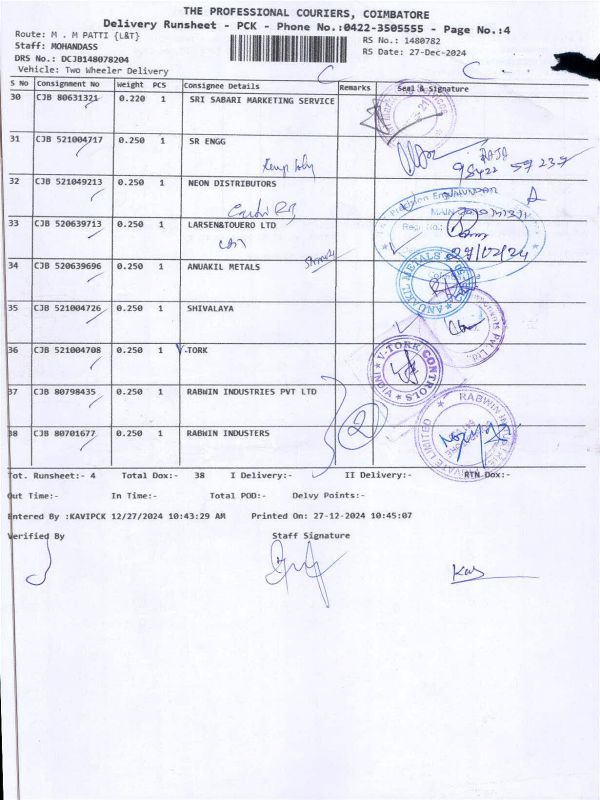 THE PROFESSIONAL COURIERS, COIMBATORE
Delivery Runsheet - PCK - Phone No.:0422-3505555 - Page No.:4
Route: M . M PATTI {L&T}
RS No.: 1480782
Staff: MOHANDASS
RS Date: 27-Dec-2024
DRS No.: DCJB148078204
Vehicle: Two Wheeler Delivery
S No Consignment No Weight PCS Consignee Details Remarks Seal & Signature
30 CJB 80631321 0.220 1 SRI SABARI MARKETING SERVICE
31 CJB 521004717 0.250 1 SR ENGG
RAJA
98422 57237
32 CJB 521049213 0.250 1 NEON DISTRIBUTORS
33 CJB 520639713 0.250 1 LARSEN&TOUERO LTD
Precision Eng
MAIN
Regi. No.:
27/12/24
34 CJB 520639696 0.250 1 ANUAKIL METALS
METALS
35 CJB 521004726 0.250 1 SHIVALAYA
Pvt Ltd.
36 CJB 521004708 0.250 1 V-TORK
V-TORK CONTROLS
INDIA
37 CJB 80798435 0.250 1 RABWIN INDUSTRIES PVT LTD
2
38 CJB 80701677 0.250 1 RABWIN INDUSTERS
RABWIN INDUSTRIES PRIVATE LIMITED
Tot. Runsheet:- 4 Total Dox:- 38 I Delivery:- II Delivery:- RTN Dox:-
Out Time:- In Time:- Total POD:- Delvy Points:-
Entered By :KAVIPCK 12/27/2024 10:43:29 AM Printed On: 27-12-2024 10:45:07
Verified By Staff Signature